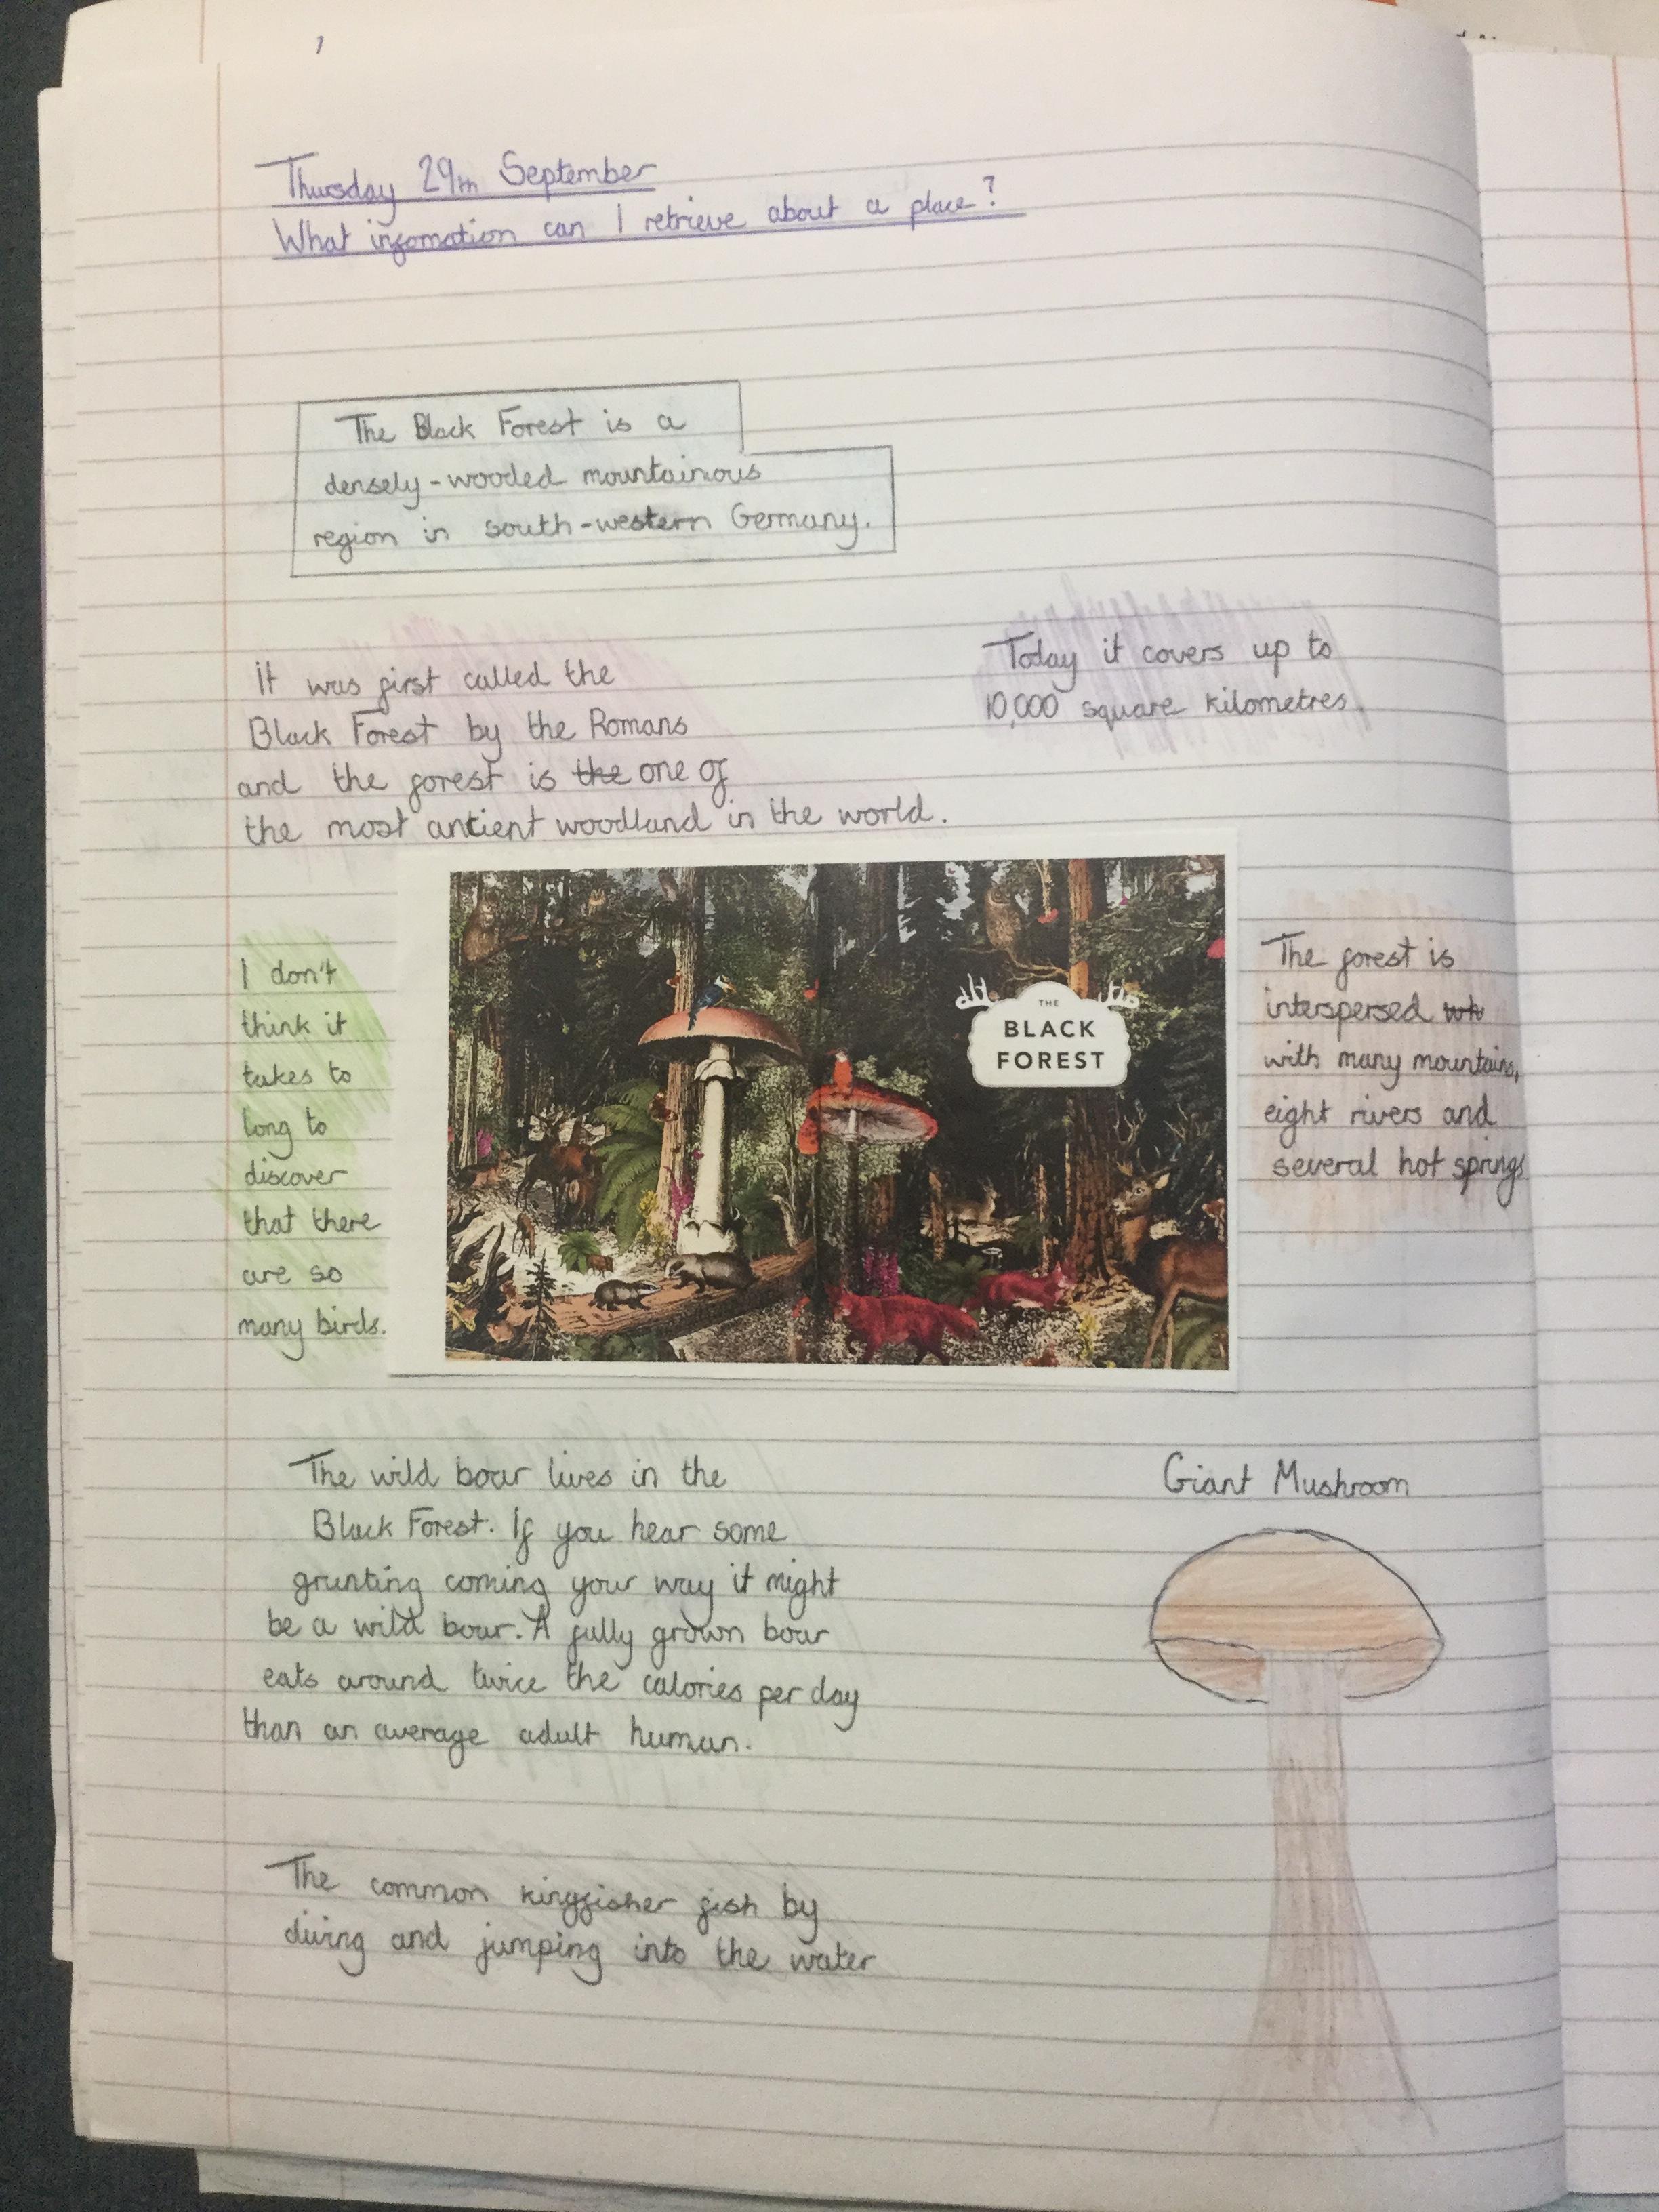 Thursday 29th September
What infomation can I retrieve about a place?
The Black Forest is a
densely-wooded mountainious
region in south-western Germany.
It was first called the
Black Forest by the Romans
and the forest is the one of
the most antient woodland in the world.
Today it covers up to
10,000 square kilometres.
I don't
think it
takes to
long to
discover
that there
are so
many birds.
THE
BLACK
FOREST
The forest is
interspersed
with many mountains,
eight rivers and
several hot springs
The wild boar lives in the
Black Forest. If you hear some
grunting coming your way it might
be a wild boar. A fully grown boar
eats around twice the calories per day
than an average adult human.
Giant Mushroom
The common kingfisher fish by
diving and jumping into the water